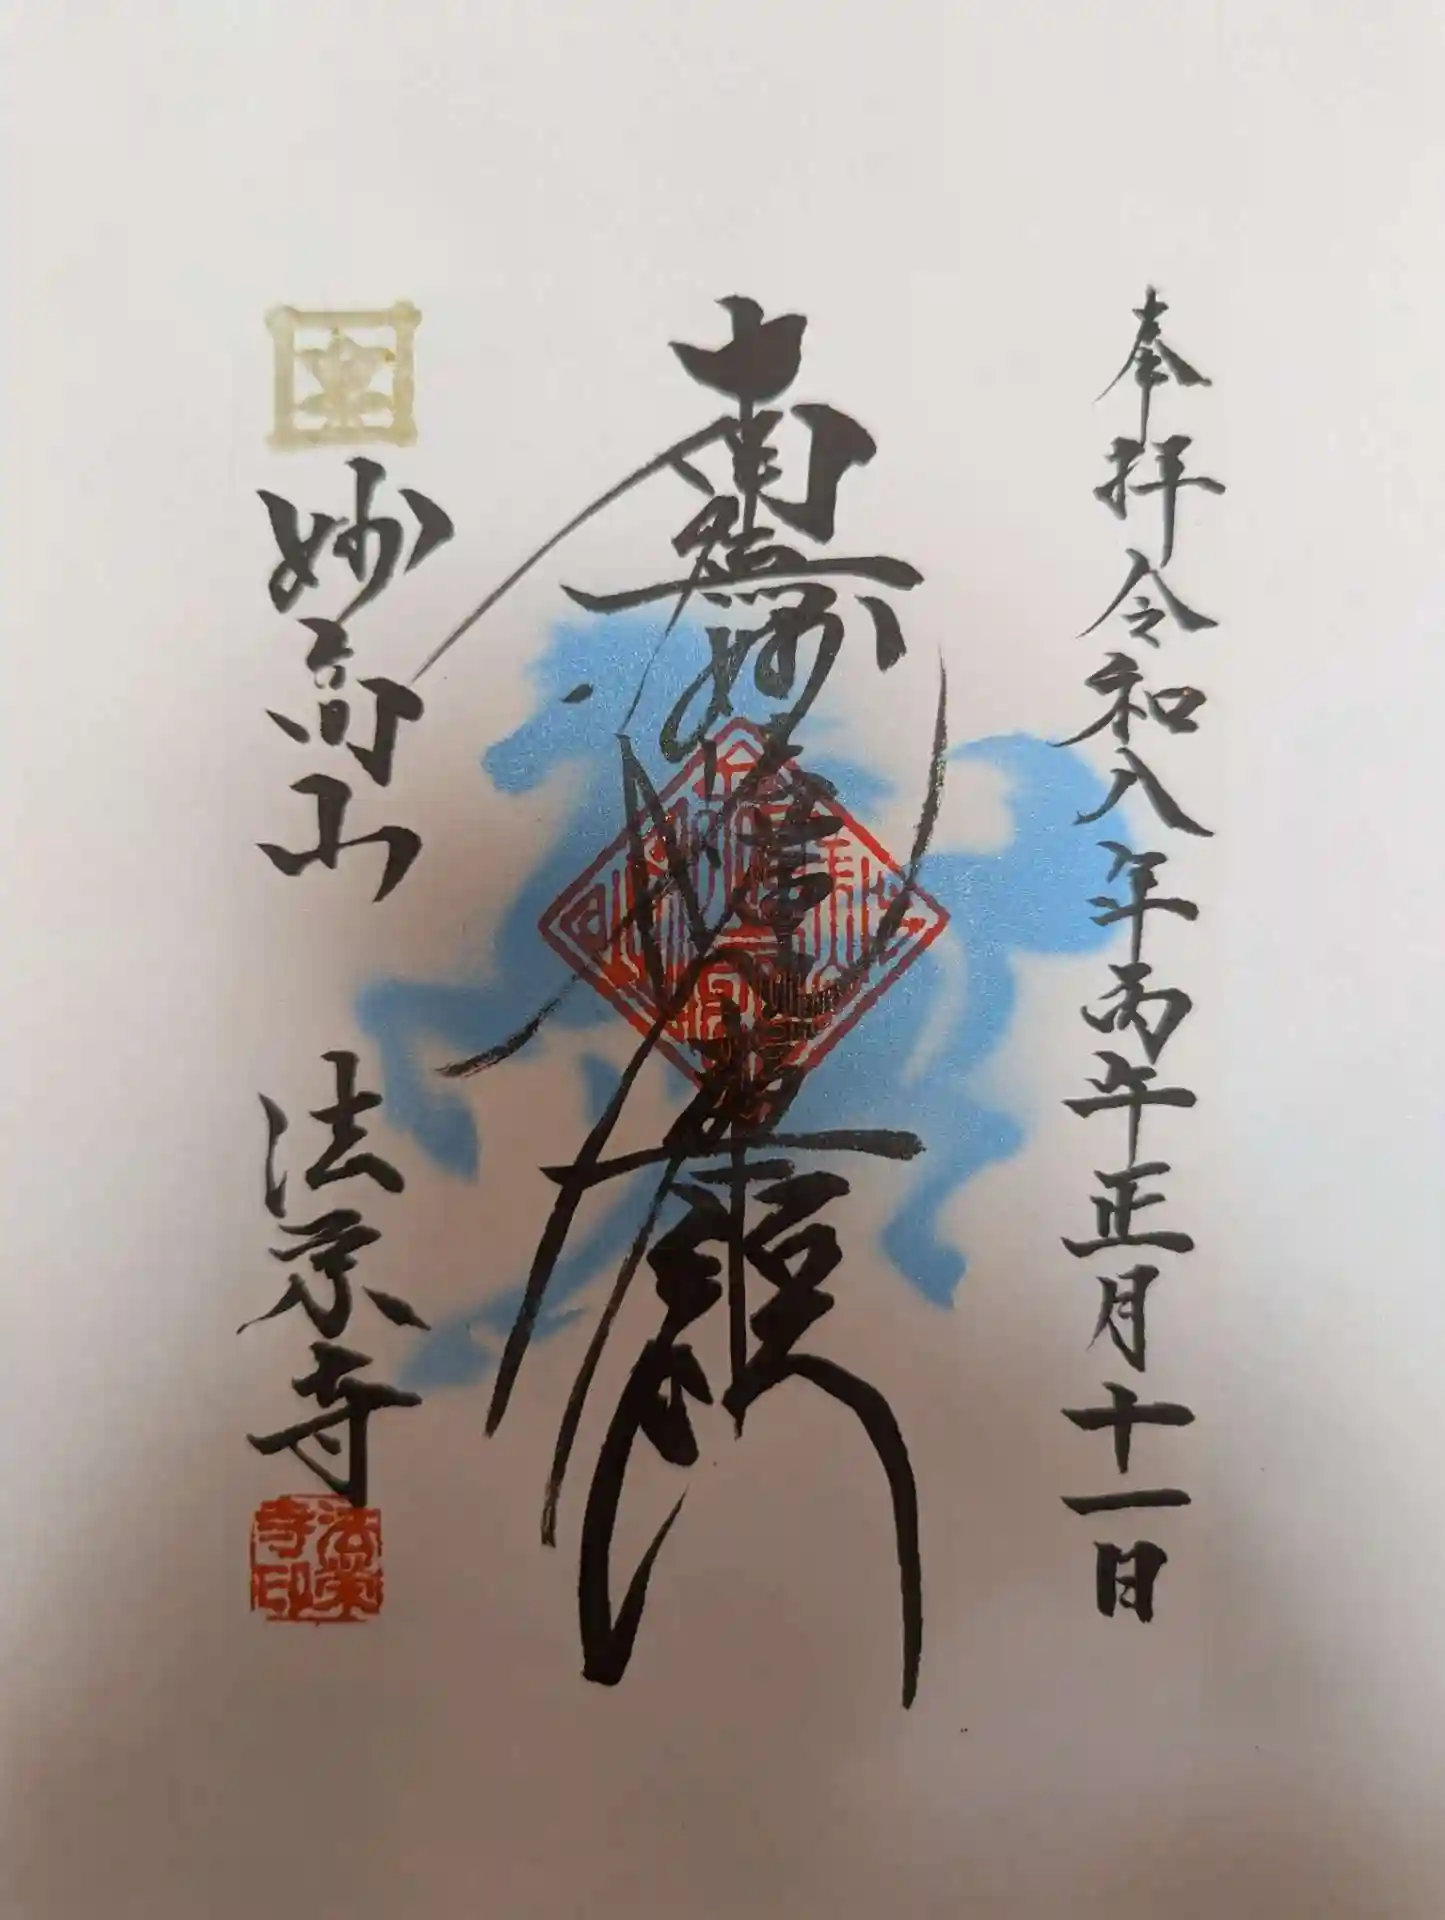 奉拝令和八年丙午正月十一日
南無妙法蓮華經
妙高山 法栄寺
法栄寺印